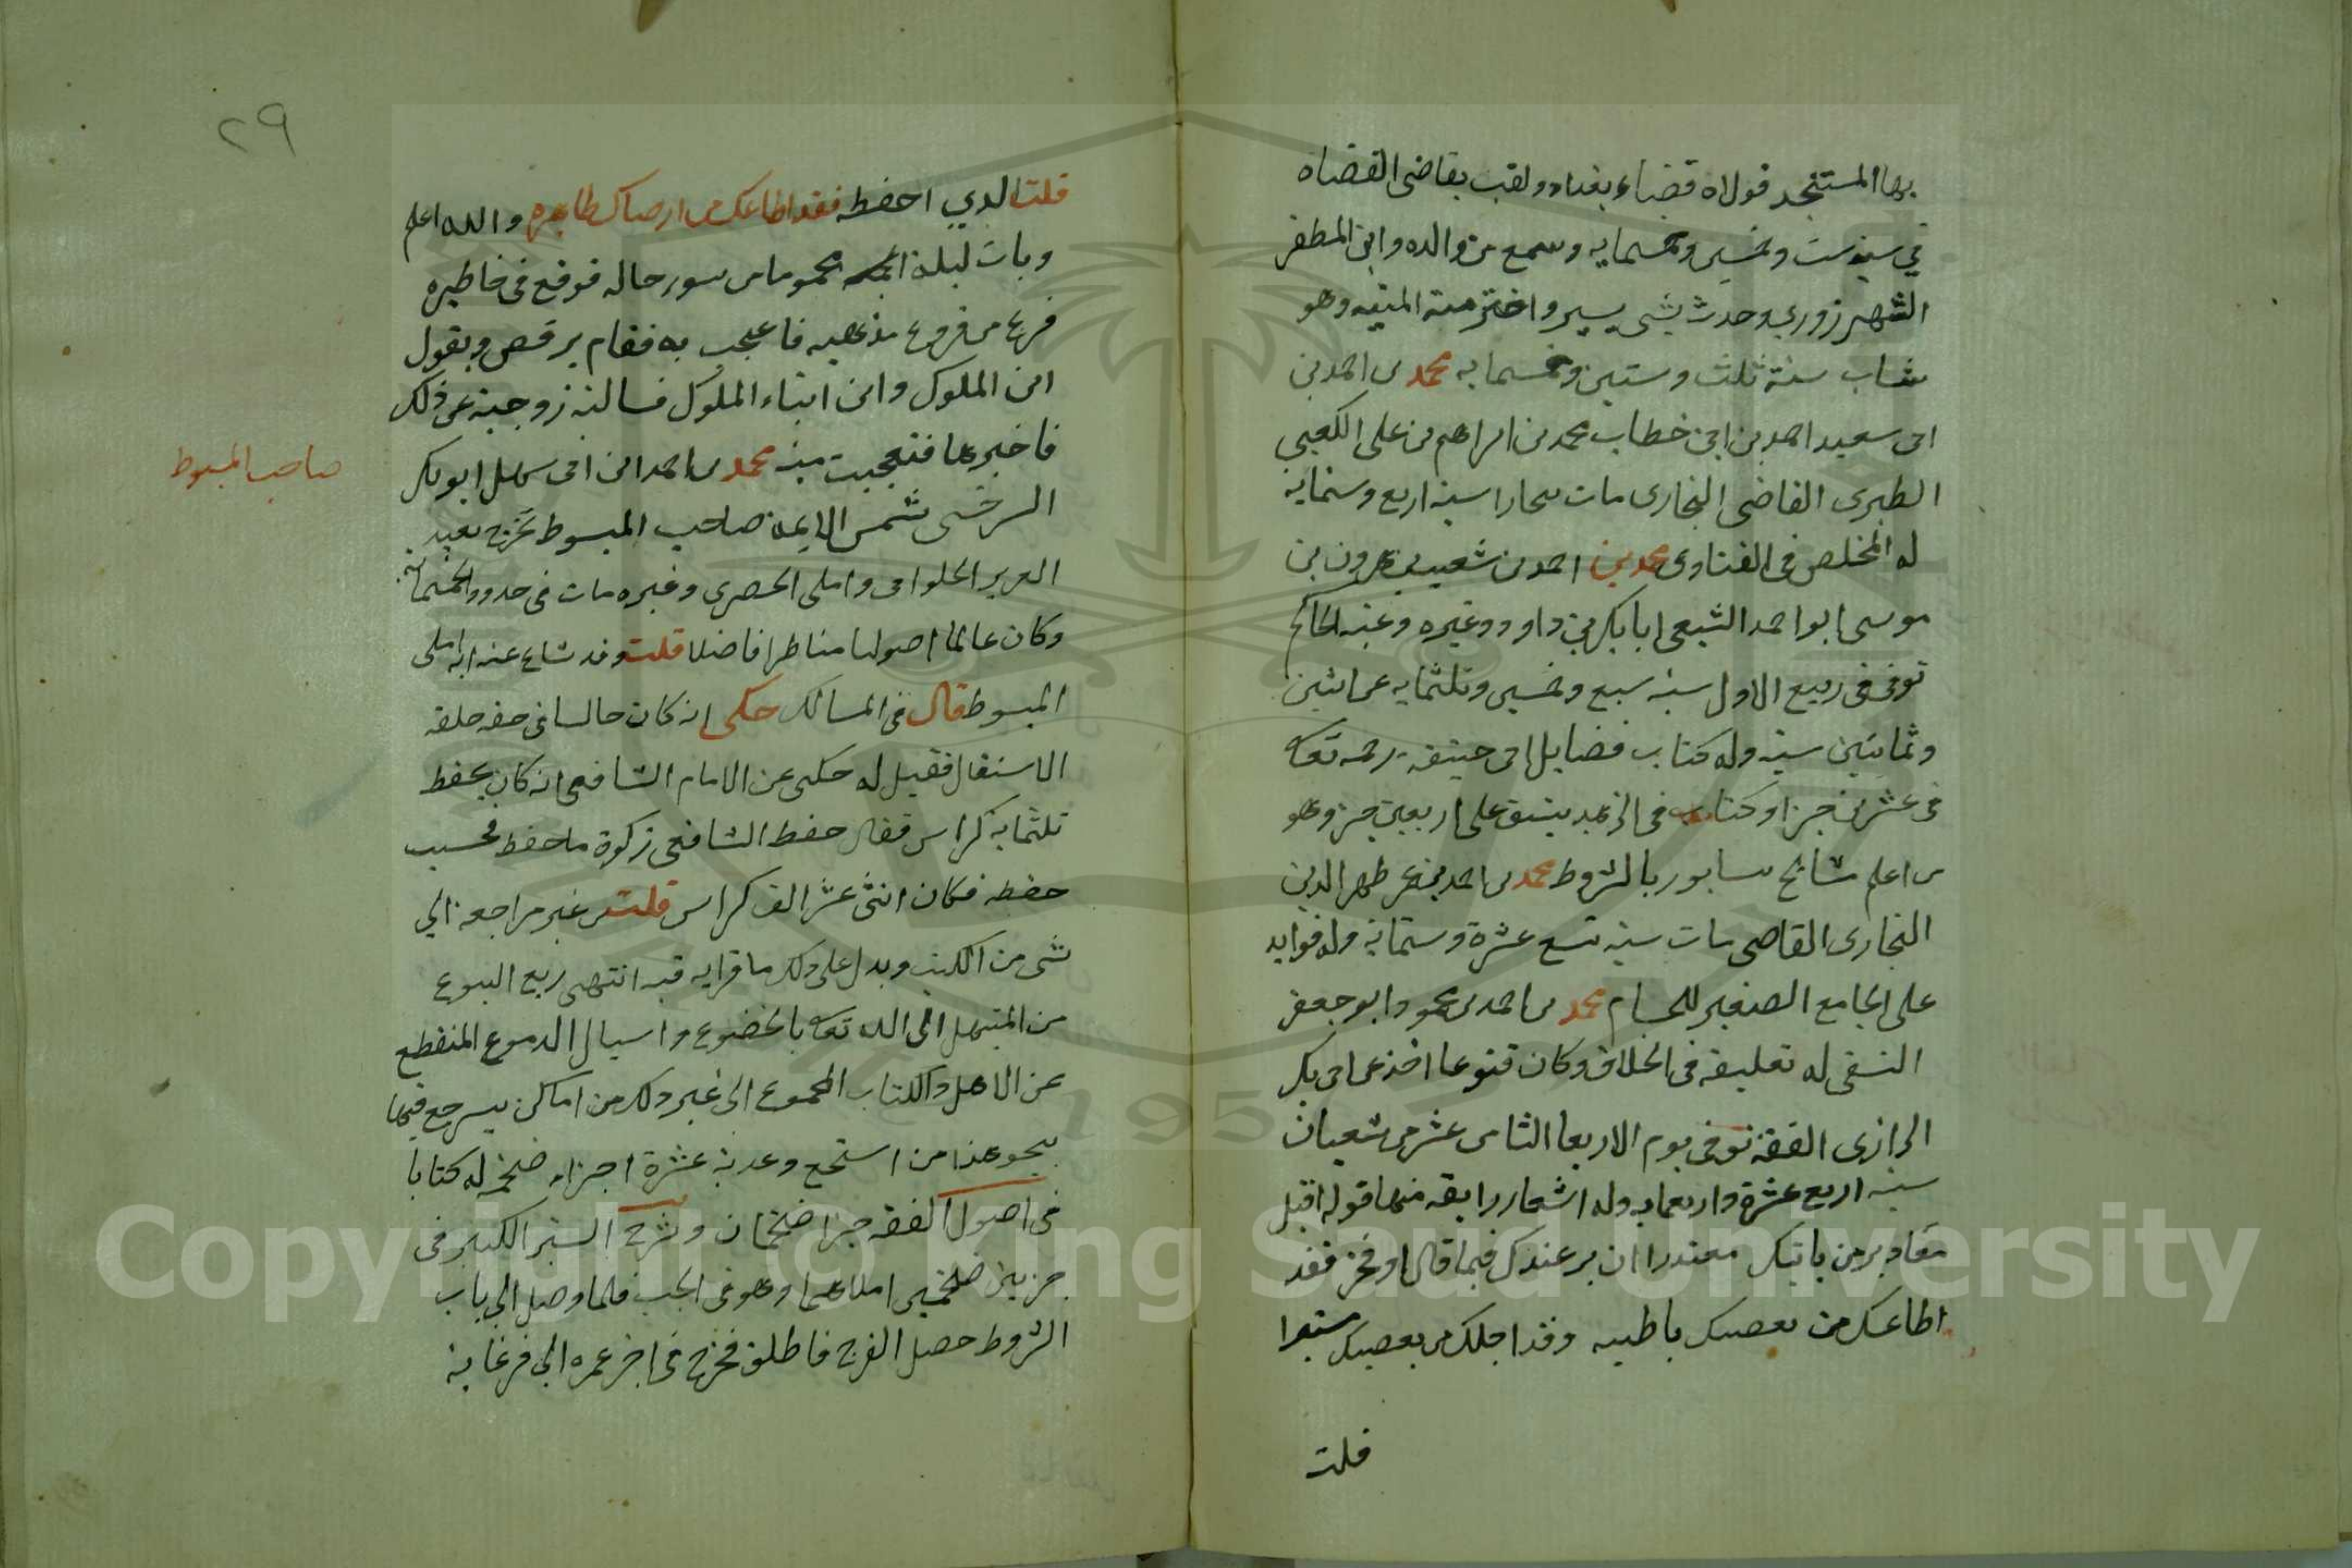 بها المستنجد فولاه قضاء بغداد ولقب بقاضى القضاة
في سنة ست وخمسين وخمسمايه وسمع من والده وابن المظفر
الشهرزوري وحدث بشى يسير واخترمته المنيه وهو
شاب سنة ثلث وستين وخمسمايه محمد بن احمد بن
ابى سعيد احمد بن ابى خطاب محمد بن ابراهيم بن على الكعبي
الطبرى القاضى البخارى مات ببخارا سنة اربع وستمايه
له الملخص فى الفتاوى محمد بن احمد بن شعيب بن هرون بن
موسى ابو احمد الشيعى ابا بكر بن داود وغيره وعنه الحاكم
توفى فى ربيع الاول سنه سبع وخمسين وثلثمايه عن اثنين
وثمانين سنه وله كتاب فضايل ابى حنيفة رحمه تعالى
فى عشرين جزا وكتاب فى الزهد ينيف على اربعين جزو وهو
من اعلم مشايخ نيسابور بالشروط محمد بن احمد بن عمر ظهير الدين
البخارى القاضى مات سنه تسع عشرة وستمايه وله فوايد
على الجامع الصغير للحسام محمد بن احمد بن محمود ابو جعفر
النسفى له تعليقه فى الخلاف وكان قنوعا اخذ عن ابى بكر
الرازى الفقه توفى يوم الاربعا الثامن عشر من شعبان
سنه اربع عشرة واربعمايه وله اشعار رايقه منها قوله اقبل
معاذير من ياتيك معتذرا ان بر عندك فيما قال او فجر فقد
اطاعك من يعصيك باطنه وقد اجلك من يعصيك مستترا
قلت
٢٩
قلت الذي احفظه فقد اطاعك من ارضاك ظاهره والله اعلم
وبات ليلة مهموما من سور حاله فوقع فى خاطره
فرع من فروع مذهبه فاعجب به فقام يرقص ويقول
اين الملوك واين ابناء الملوك فسالته زوجته عن ذلك
فاخبرها فتعجبت منه محمد بن احمد ابن ابى سهل ابو بكر
السرخسى شمس الايمة صاحب المبسوط تخرج بعبد
العزيز الحلوانى واملى الحصرى وغيره مات فى حدود الخمسمائة
وكان عالما اصوليا مناظرا فاضلا قلت وقد شاع عنه انه املى
المبسوط قال فى المسالك حكى انه كان جالسا فى حلقه
الاشتغال فقيل له حكى عن الامام الشافعى انه كان يحفظ
ثلثمايه كراس فقال حفظ الشافعى زكوة ما حفظ فحسب
حفظه فكان اثنى عشر الف كراس قلت من غير مراجعة الي
شى من الكتب ويدل على ذلك ما قرايه فيه انتهى ربع البيوع
من المتبهل الى الله تعالى بالخضوع واسبال الدموع المنقطع
عن الاهل والكتاب المجموع الى غير ذلك من اماكن يسرجع فيها
بنحو هذا من استجمع وعدته عشرة اجزاء ضخم له كتابا
فى اصول الفقه جزا ضخمان وشرح السير الكبير فى
جزيين ضخمين املاهما وهو فى الجب فلما وصل الى باب
الشروط حصل الفرج فاطلق فخرج فى اخر عمره الى فرغانة
صاحب المبسوط
Copyright © King Saud University
1957